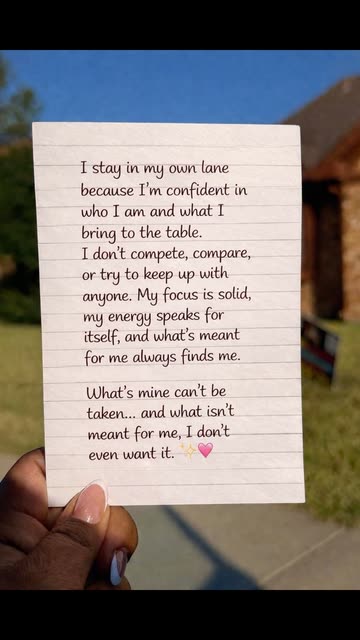 I stay in my own lane
because I'm confident in
who I am and what I
bring to the table.
I don't compete, compare,
or try to keep up with
anyone. My focus is solid,
my energy speaks for
itself, and what's meant
for me always finds me.
What's mine can't be
taken... and what isn't
meant for me, I don't
even want it. ✨🩷